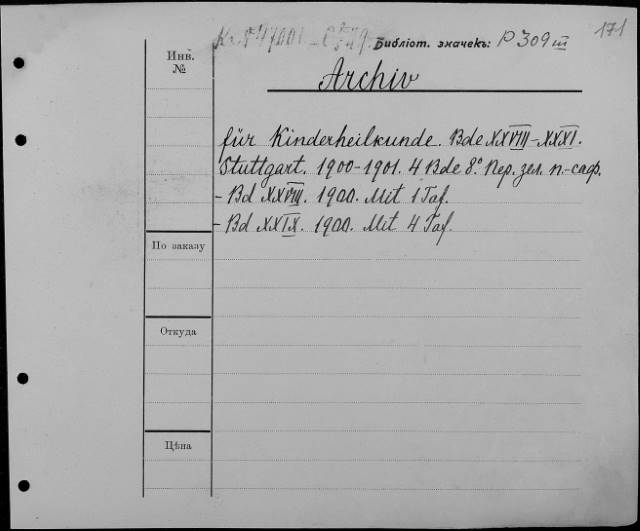 171
Библіот. значекъ: P 309 III
Инв. №
Archiv
für Kinderheilkunde. Bde XXVIII-XXXI.
Stuttgart. 1900-1901. 4 Bde 8.° Пер. зел. п.-саф.
- Bd XXVIII. 1900. Mit 1 Taf.
- Bd XXIX. 1900. Mit 4 Taf.
По заказу
Откуда
Цѣна